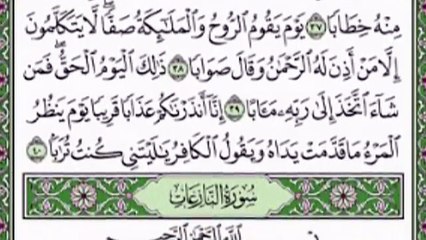 مِنْهُ خِطَابًا ٣٧ يَوْمَ يَقُومُ الرُّوحُ وَالْمَلَٰٓئِكَةُ صَفًّا ۖ لَّا يَتَكَلَّمُونَ
إِلَّا مَنْ أَذِنَ لَهُ الرَّحْمَٰنُ وَقَالَ صَوَابًا ٣٨ ذَٰلِكَ الْيَوْمُ الْحَقُّ ۖ فَمَن
شَآءَ اتَّخَذَ إِلَىٰ رَبِّهِۦ مَـَٔابًا ٣٩ إِنَّآ أَنذَرْنَٰكُمْ عَذَابًا قَرِيبًا يَوْمَ يَنظُرُ
الْمَرْءُ مَا قَدَّمَتْ يَدَاهُ وَيَقُولُ الْكَافِرُ يَٰلَيْتَنِي كُنتُ تُرَٰبًا ٤٠
سُورَةُ النَّازِعَاتِ
بِسْمِ اللَّهِ الرَّحْمَٰنِ الرَّحِيمِ